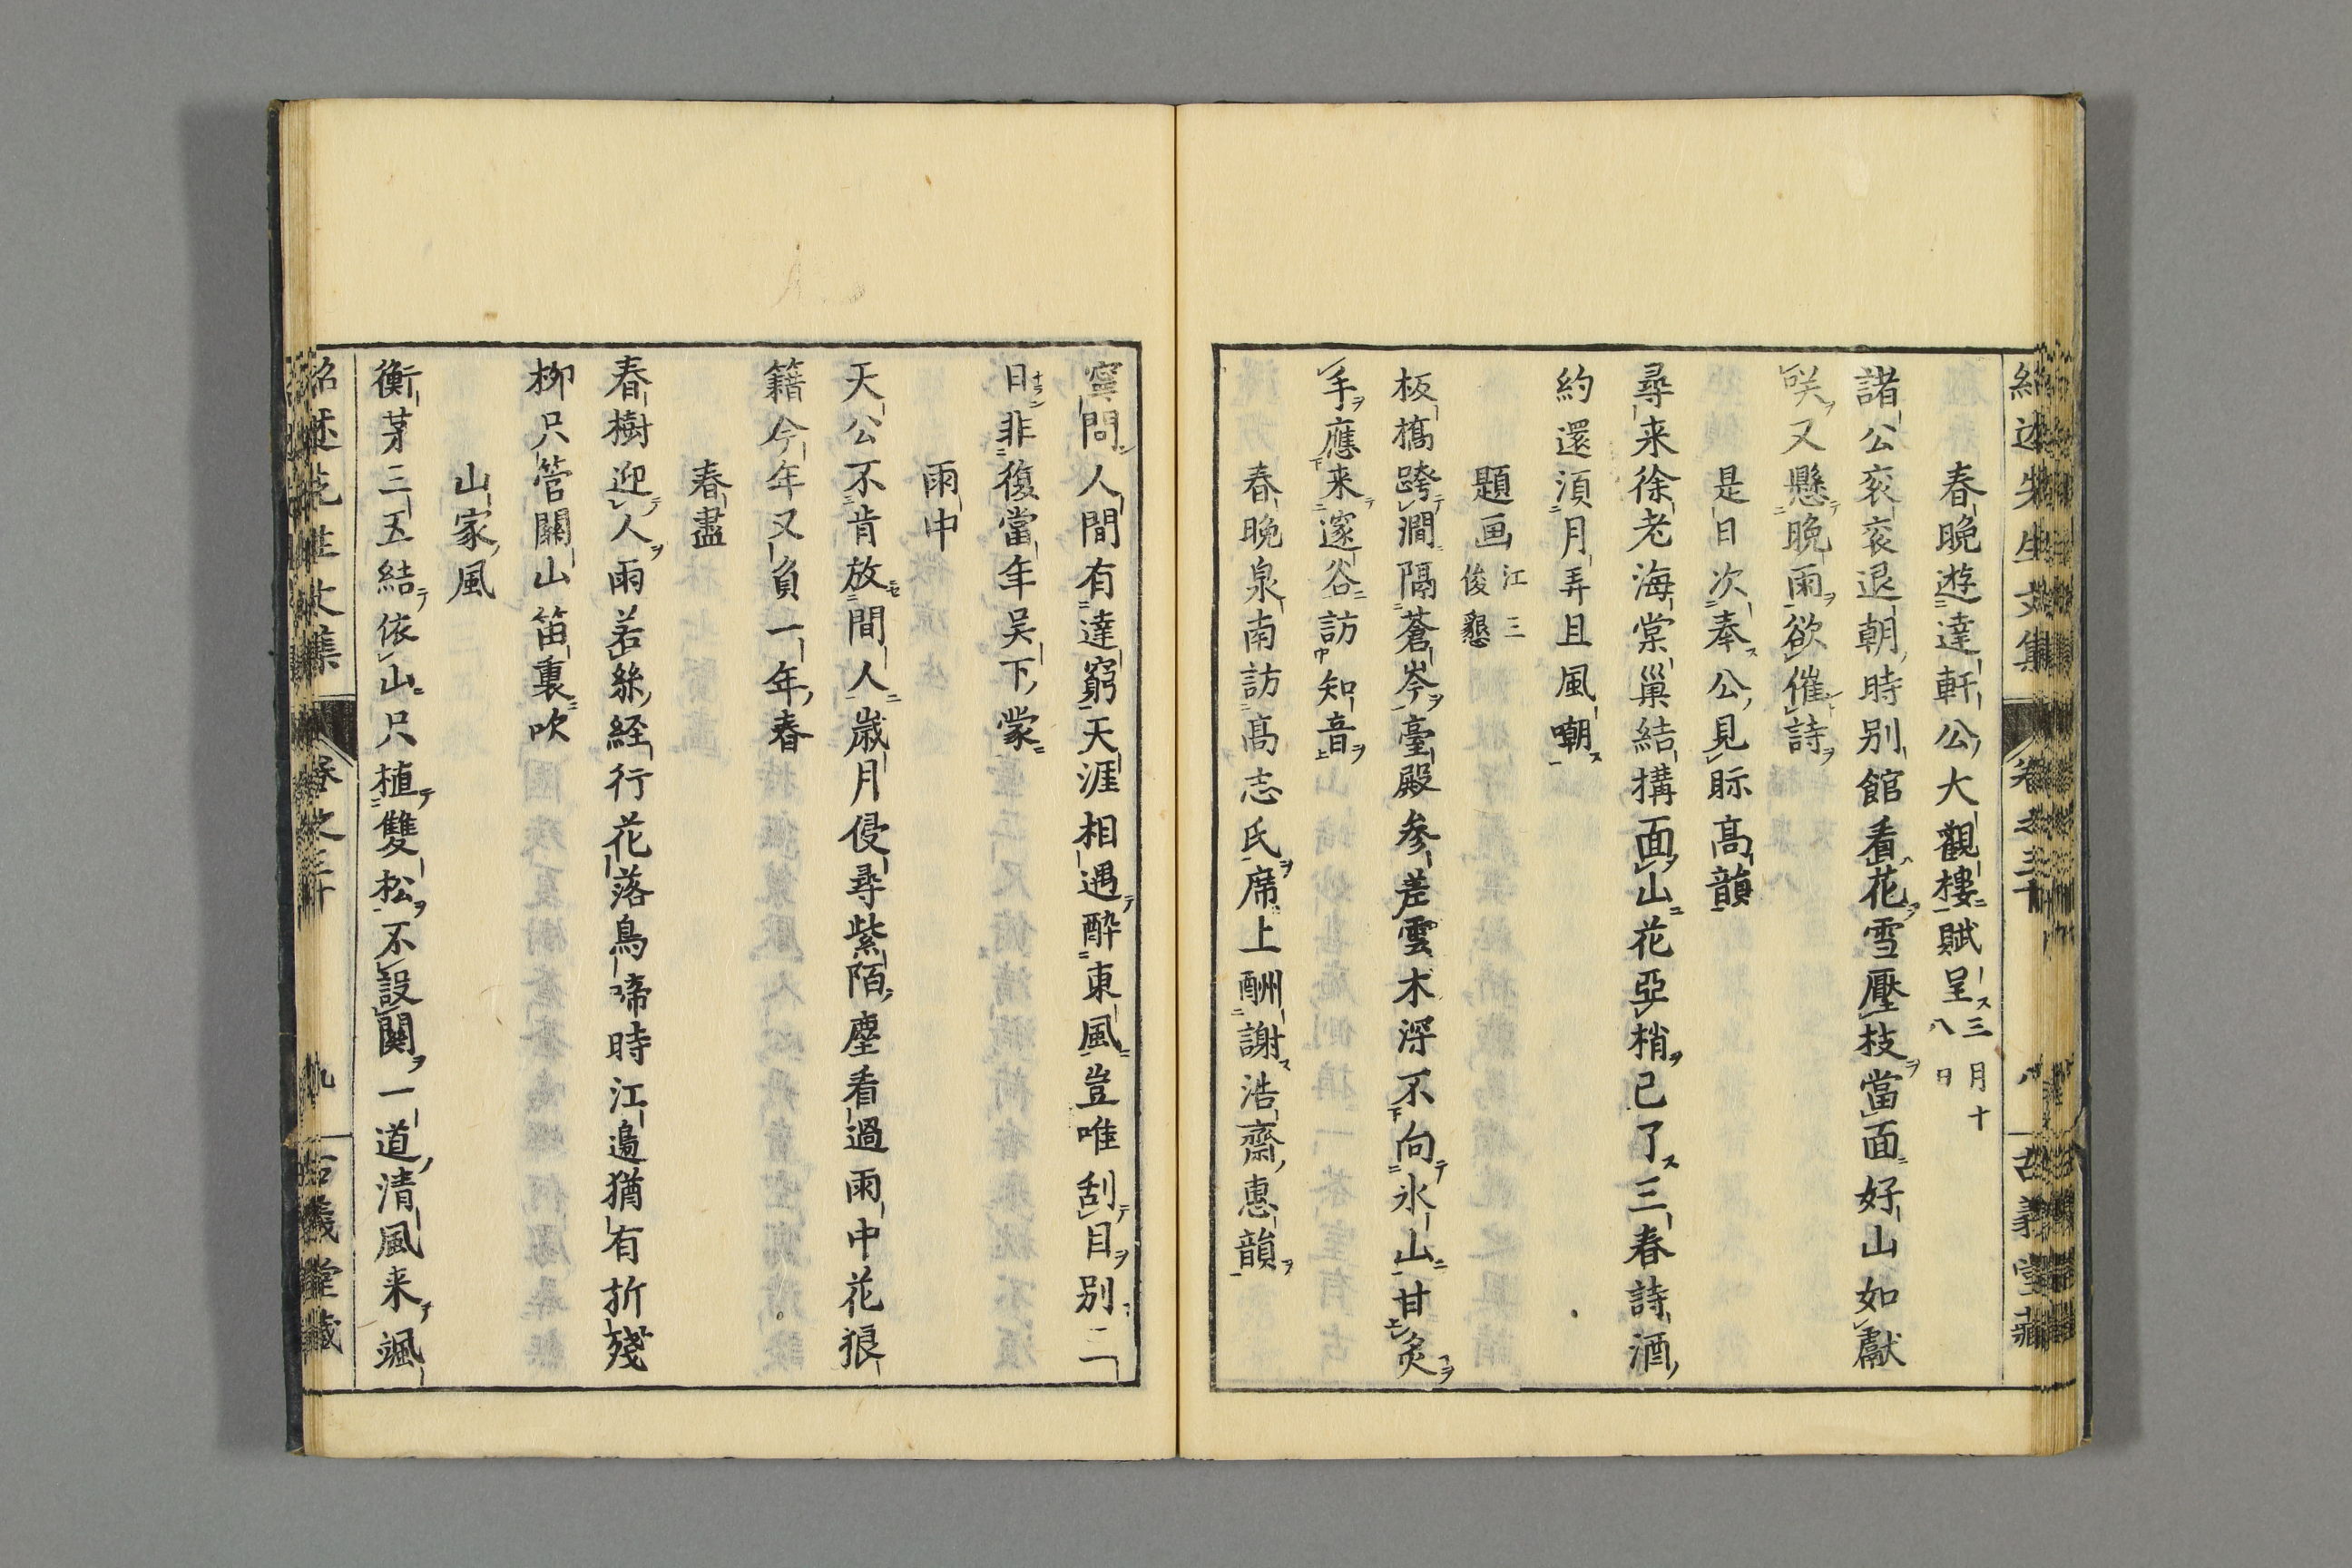 紹述先生文集 卷之三十 八 古義堂藏
春晩遊達軒公大觀樓賦呈三月十八日
諸公衮衮退朝時別館看花雪壓枝當面好山如獻
咲又懸晩雨欲催詩
是日次奉公見眎高韻
尋来徐老海棠巢結構面山花亞梢已了三春詩酒
約還須月弄且風嘲
題画江三俊懇
板橋跨澗隔蒼岑臺殿参差雲木深不向氷山甘炙
手應来邃谷訪知音
春晩泉南訪高志氏席上酬謝浩齋惠韻
寧問人間有達窮天涯相遇酔東風豈唯刮目別二
日非復當年吴下蒙
雨中
天公不肯放間人歳月侵尋紫陌塵看過雨中花狼
籍今年又負一年春
春盡
春樹迎人雨若絲経行花落鳥啼時江邉猶有折殘
柳只管關山笛裏吹
山家風
衡茅三五結依山只植雙松不設関一道清風来颯
紹述先生文集 卷之三十 九 古義堂藏